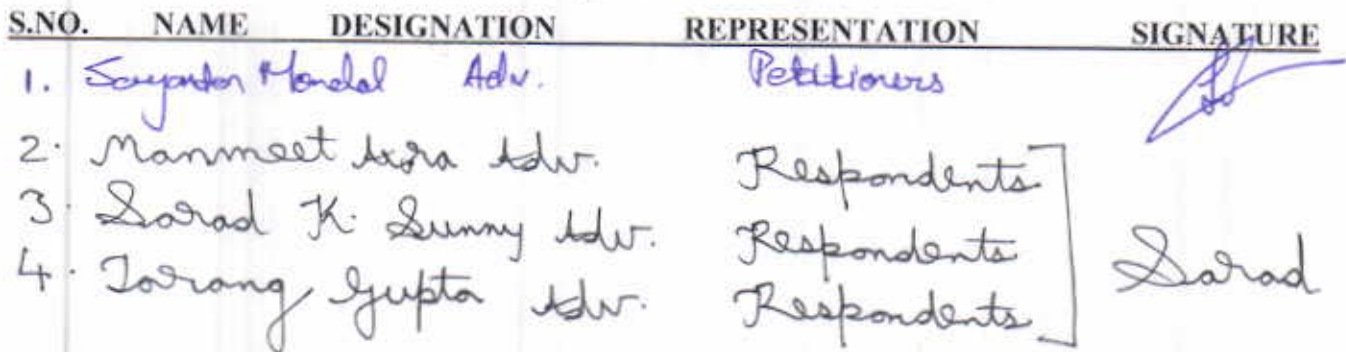 S.NO. NAME DESIGNATION REPRESENTATION SIGNATURE
1. Sayantan Mondal Adv. Petitioners
2. Manmeet Arora Adv. Respondents
3. Sarad K. Sunny Adv. Respondents
4. Tarang Gupta Adv. Respondents
Sarad